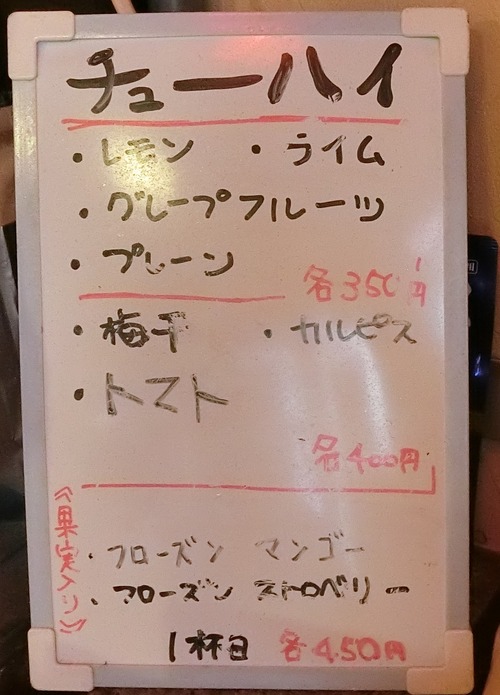 チューハイ
・レモン ・ライム
・グレープフルーツ
・プレーン
各350円
・梅干 ・カルピス
・トマト
各400円
《果実入り》
・フローズン マンゴー
・フローズン ストロベリー
1杯目 各450円